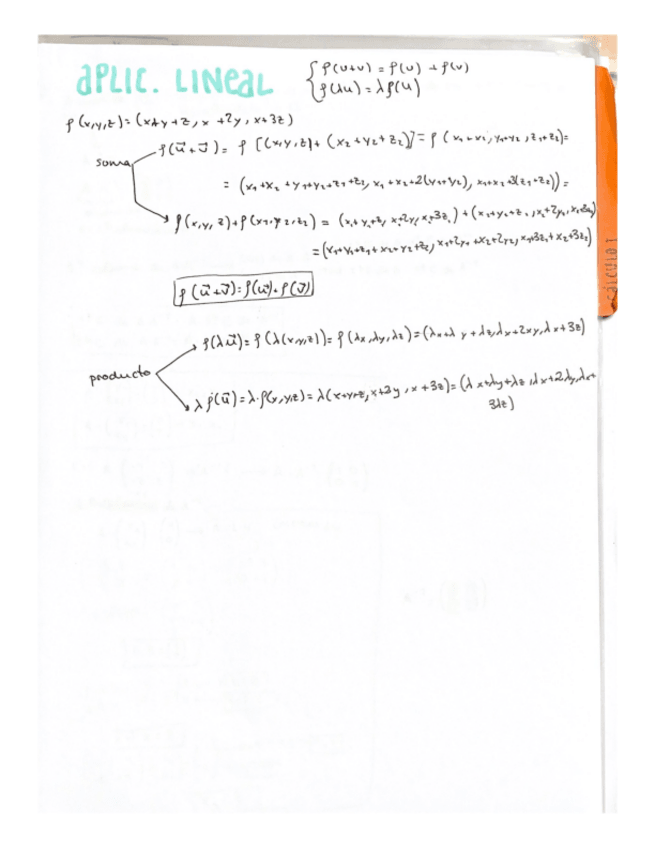 APLIC. LINEAL
f(u+v) = f(u) + f(v)
f(λu) = λf(u)
f(x,y,z) = (x+y+z, x+2y, x+3z)
soma
f(u⃗+v⃗) = f[(x,y,z)+(x2+y2+z2)] = f(x1+x2, y1+y2, z1+z2) =
= (x1+x2+y1+y2+z1+z2, x1+x2+2(y1+y2), x1+x2+3(z1+z2)) =
f(x,y,z)+f(x2,y2,z2) = (x1+y1+z1, x1+2y1, x1+3z1)+(x2+y2+z2, x2+2y2, x2+3z2)
= (x1+y1+z1+x2+y2+z2, x1+2y1+x2+2y2, x1+3z1+x2+3z2)
f(u⃗+v⃗) = f(u⃗)+f(v⃗)
f(λu⃗) = f(λ(x,y,z)) = f(λx, λy, λz) = (λx+λy+λz, λx+2λy, λx+3z)
producto
λf(u⃗) = λ·f(x,y,z) = λ(x+y+z, x+2y, x+3z) = (λx+λy+λz, λx+2λy, λx+
3λz)
CALCULO 1